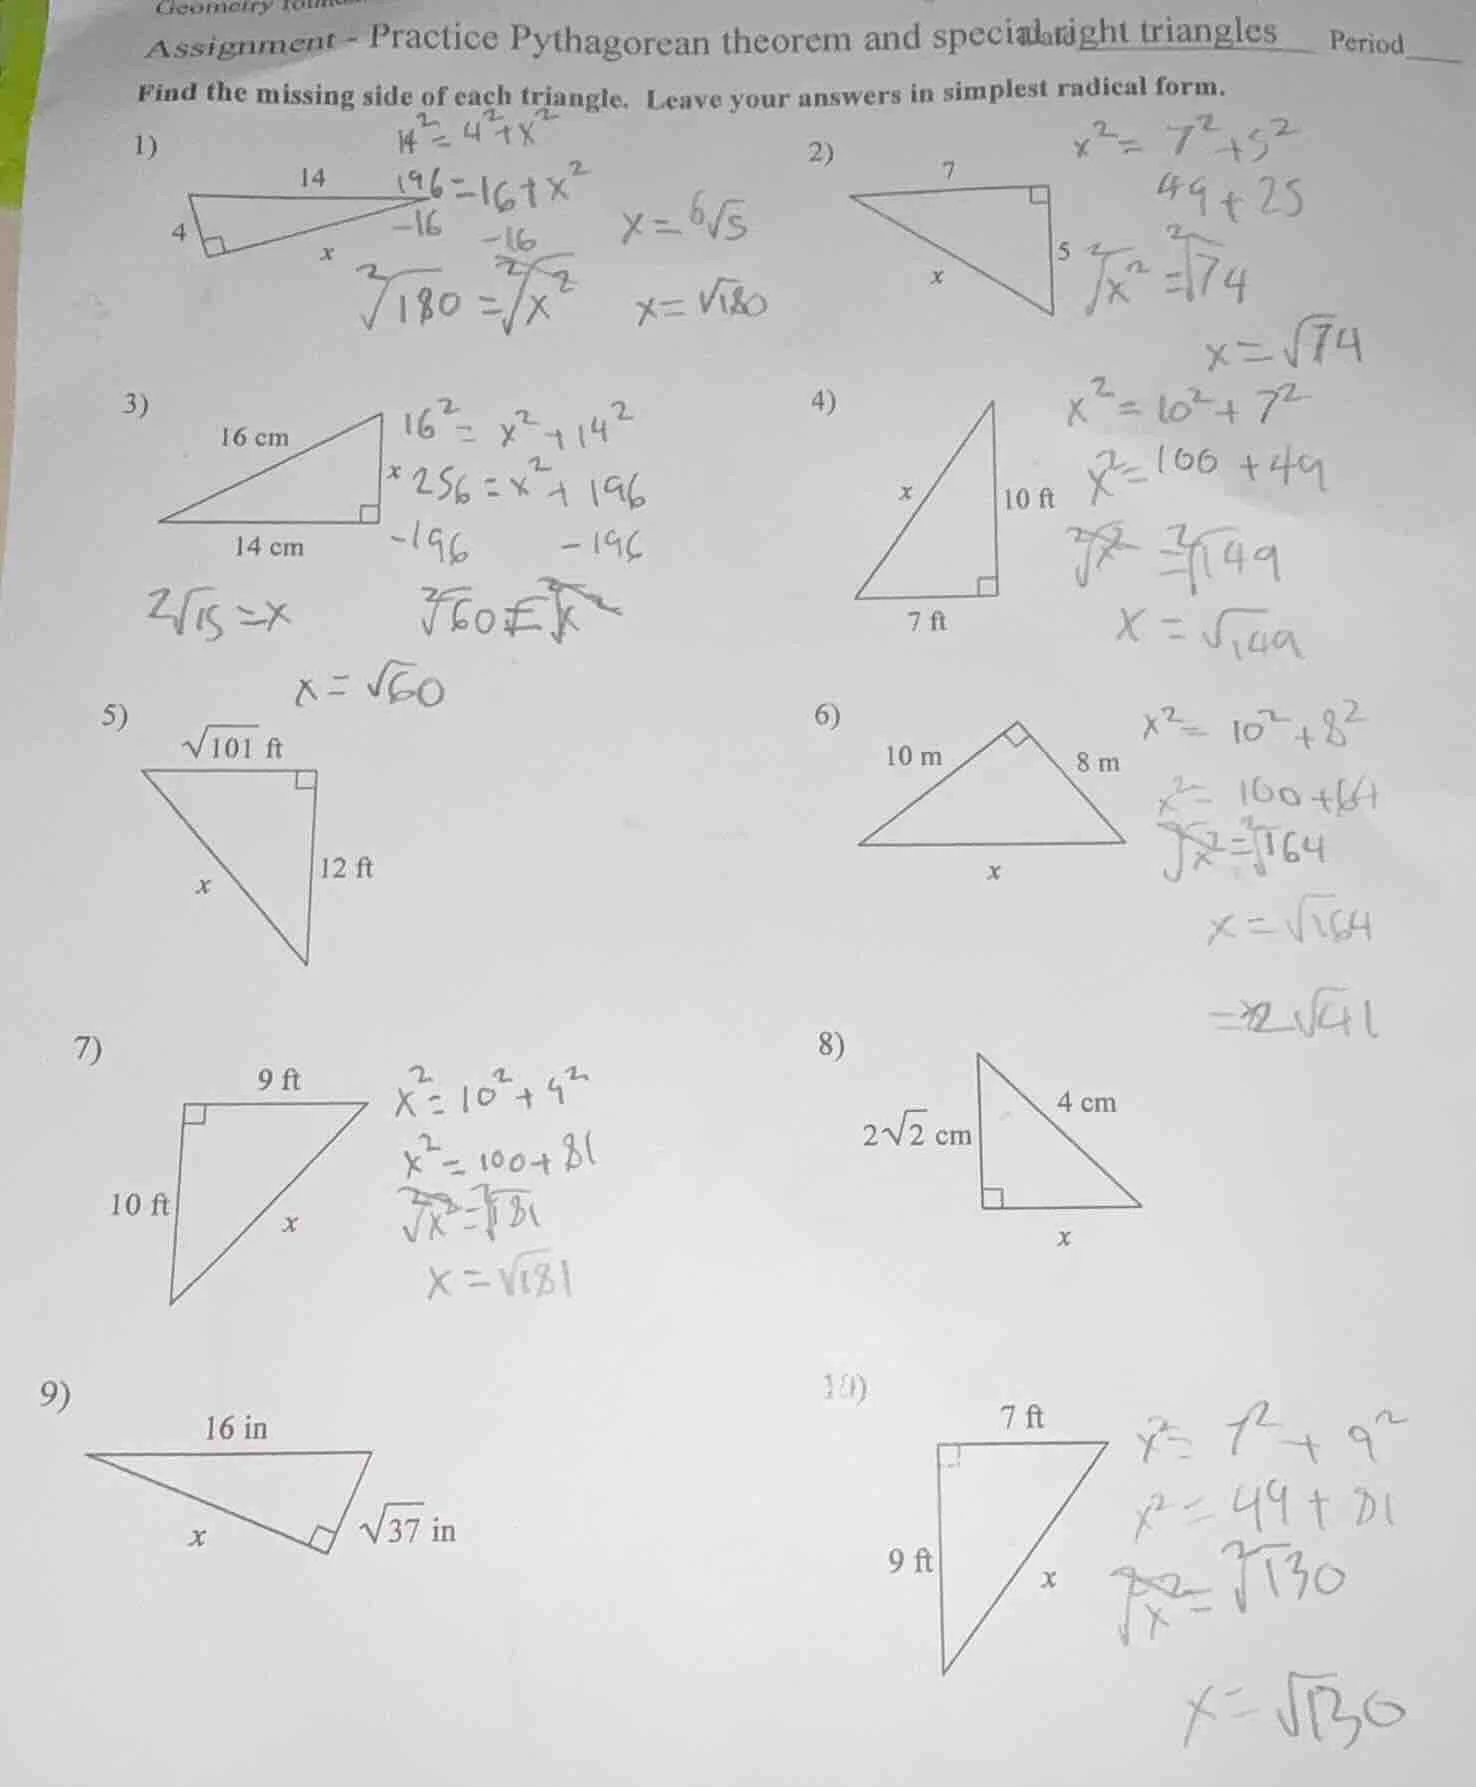 Geometry
Assignment - Practice Pythagorean theorem and special right triangles Period
Find the missing side of each triangle. Leave your answers in simplest radical form.
1)
14
4
x
14² = 4² + x²
196 = 16 + x²
-16 -16
²√180 = ²√x²
x = 6√5
x = √180
2)
7
5
x
x² = 7² + 5²
49 + 25
²√x² = ²√74
x = √74
3)
16 cm
x
14 cm
16² = x² + 14²
256 = x² + 196
-196 -196
²√60 = ²√x²
2√15 = x
x = √60
4)
x
10 ft
7 ft
x² = 10² + 7²
x² = 100 + 49
²√x² = ²√149
x = √149
5)
√101 ft
12 ft
x
6)
10 m
8 m
x
x² = 10² + 8²
x² = 100 + 64
²√x² = ²√164
x = √164
= 2√41
7)
9 ft
10 ft
x
x² = 10² + 9²
x² = 100 + 81
²√x² = ²√181
x = √181
8)
2√2 cm
4 cm
x
9)
16 in
x
√37 in
10)
7 ft
9 ft
x
x² = 7² + 9²
x² = 49 + 81
²√x² = ²√130
x = √130